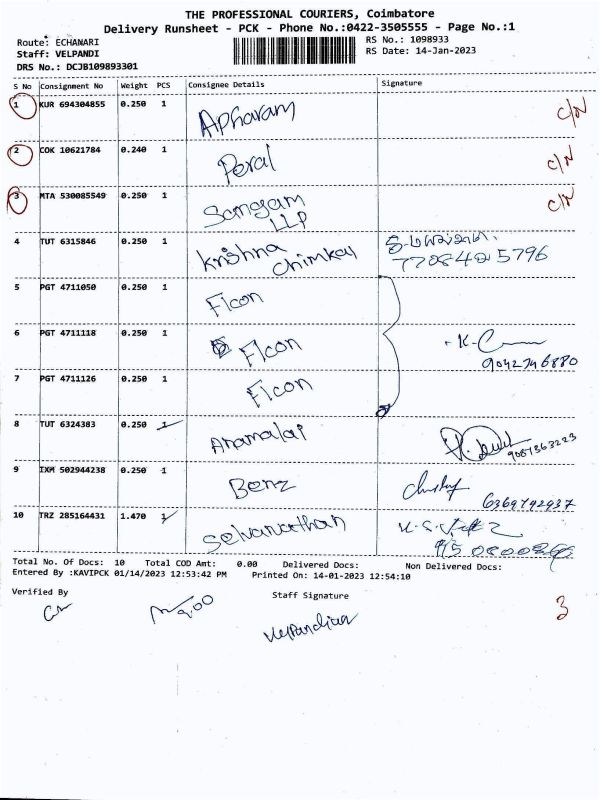 THE PROFESSIONAL COURIERS, Coimbatore
Delivery Runsheet - PCK - Phone No.:0422-3505555 - Page No.:1
Route: ECHANARI
Staff: VELPANDI
DRS No.: DCJB109893301
RS No.: 1098933
RS Date: 14-Jan-2023
S No Consignment No Weight PCS Consignee Details Signature
1 KUR 694304855 0.250 1 Apharam C/N
2 COK 10621784 0.240 1 Peral C/N
3 MTA 530085549 0.250 1 Sangam LLP C/N
4 TUT 6315846 0.250 1 Krishna Chimkal
5 PGT 4711050 0.250 1 Flcon
6 PGT 4711118 0.250 1 Flcon 9042746880
7 PGT 4711126 0.250 1 Flcon
8 TUT 6324383 0.250 1 Anamalai 9087363223
9 IXM 502944238 0.250 1 Benz 6369792937
10 TRZ 285164431 1.470 1 Selvanathan
Total No. Of Docs: 10 Total COD Amt: 0.00 Delivered Docs: Non Delivered Docs:
Entered By :KAVIPCK 01/14/2023 12:53:42 PM Printed On: 14-01-2023 12:54:10
Verified By Staff Signature
3